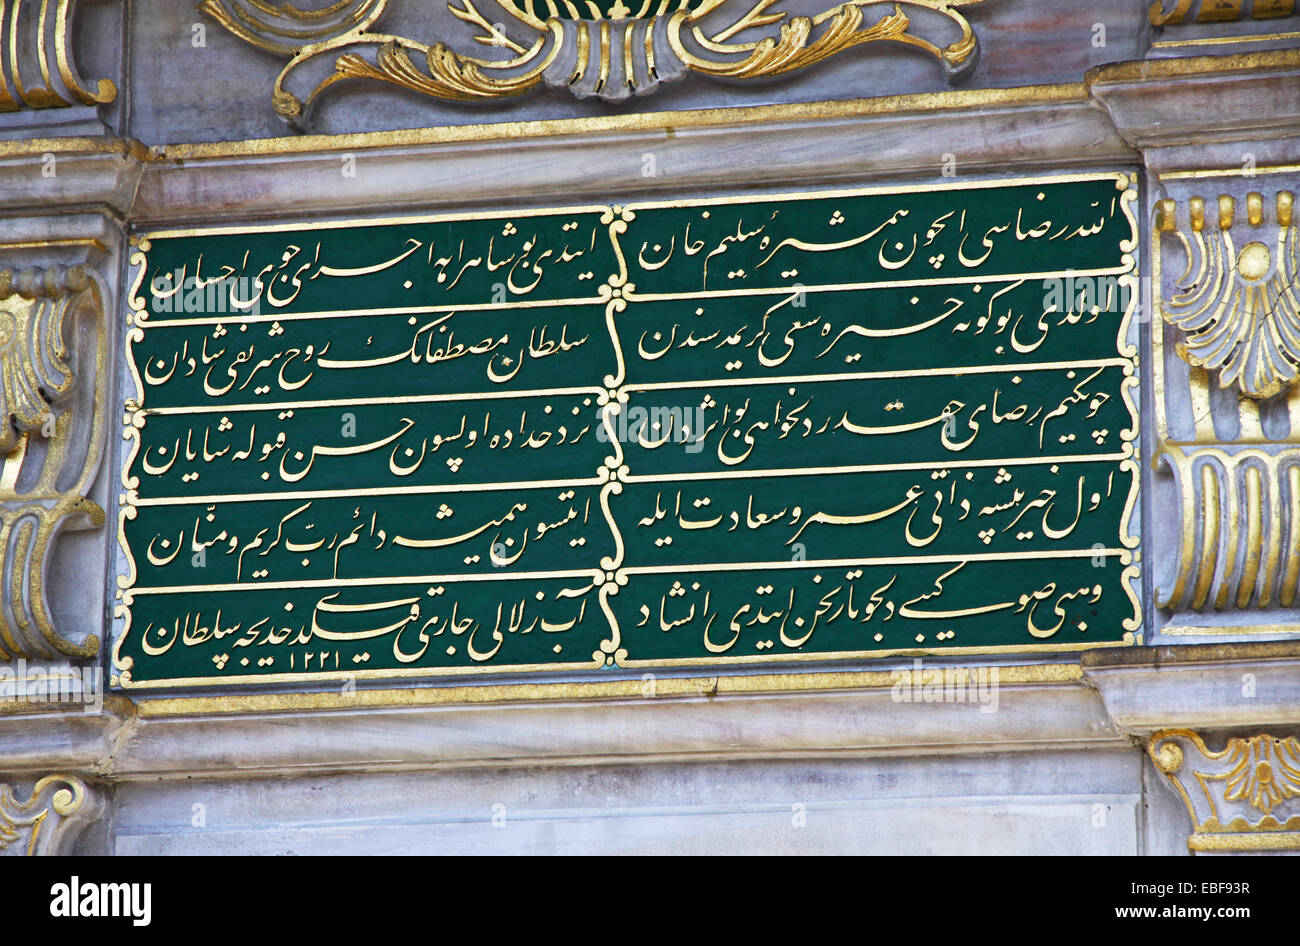 الله رضاسی ایچون همشیرهٔ سلیم خان
ایتدی بو شاهراهه اجرای جوی احسان
اولدی بو کونه خیره سعی کریمه سندن
سلطان مصطفانک روح شریفی شادان
چونکیم رضای حقدر دلخواهی بو اثردن
نزد خداده اولسون حسن قبوله شایان
اول خیر پیشه ذاتی عمر و سعادت ایله
ایتسون همیشه دائم رب کریم و منان
وهبی صویی کبی دلجو تاریخن ایتدی انشاد
آب زلالی جاری قیلدی خدیجه سلطان
١٢٢١
alamy
www.alamy.com
EBF93R